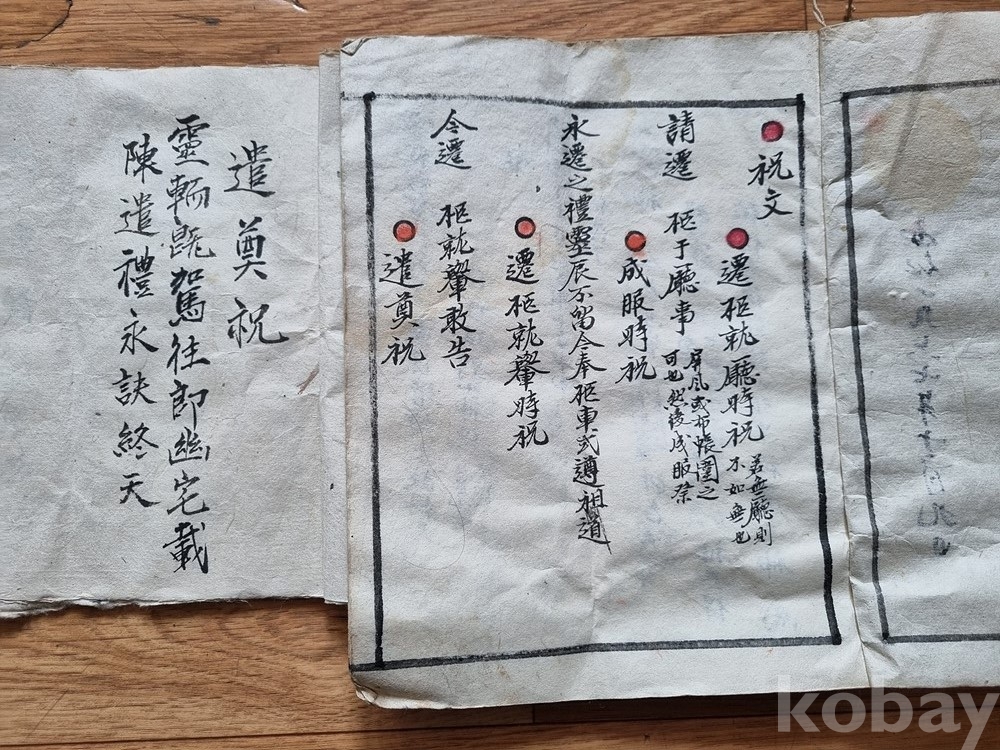 祝文
遷柩就廳時祝
若無廳則
不如無也
請遷 柩于廳事
屛風或布帳圍之
可也然後成服祭
成服時祝
永遷之禮靈辰不留今奉柩車式遵祖道
遷柩就轝時祝
今遷 柩就轝敢告
遣奠祝
遣奠祝
靈輀旣駕往卽幽宅載
陳遣禮永訣終天
kobay